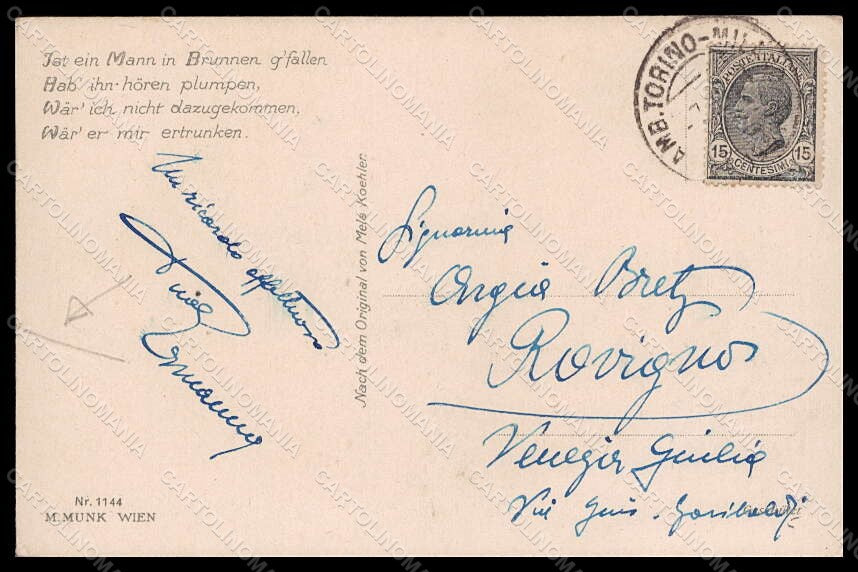 Ist ein Mann in Brunnen g'fallen
Hab' ihn hören plumpen,
Wär' ich nicht dazugekommen,
Wär' er mir ertrunken.
Un ricordo affettuoso
Nach dem Original von Mela Koehler.
Nr. 1144
M. MUNK WIEN
AMB. TORINO-MIL
POSTE ITALIANE
15 15
CENTESIMI
Signorina
Argia Bretz
Rovigno
Venezia Giulia
Via Gius. Garibaldi
CARTOLINOMANIA